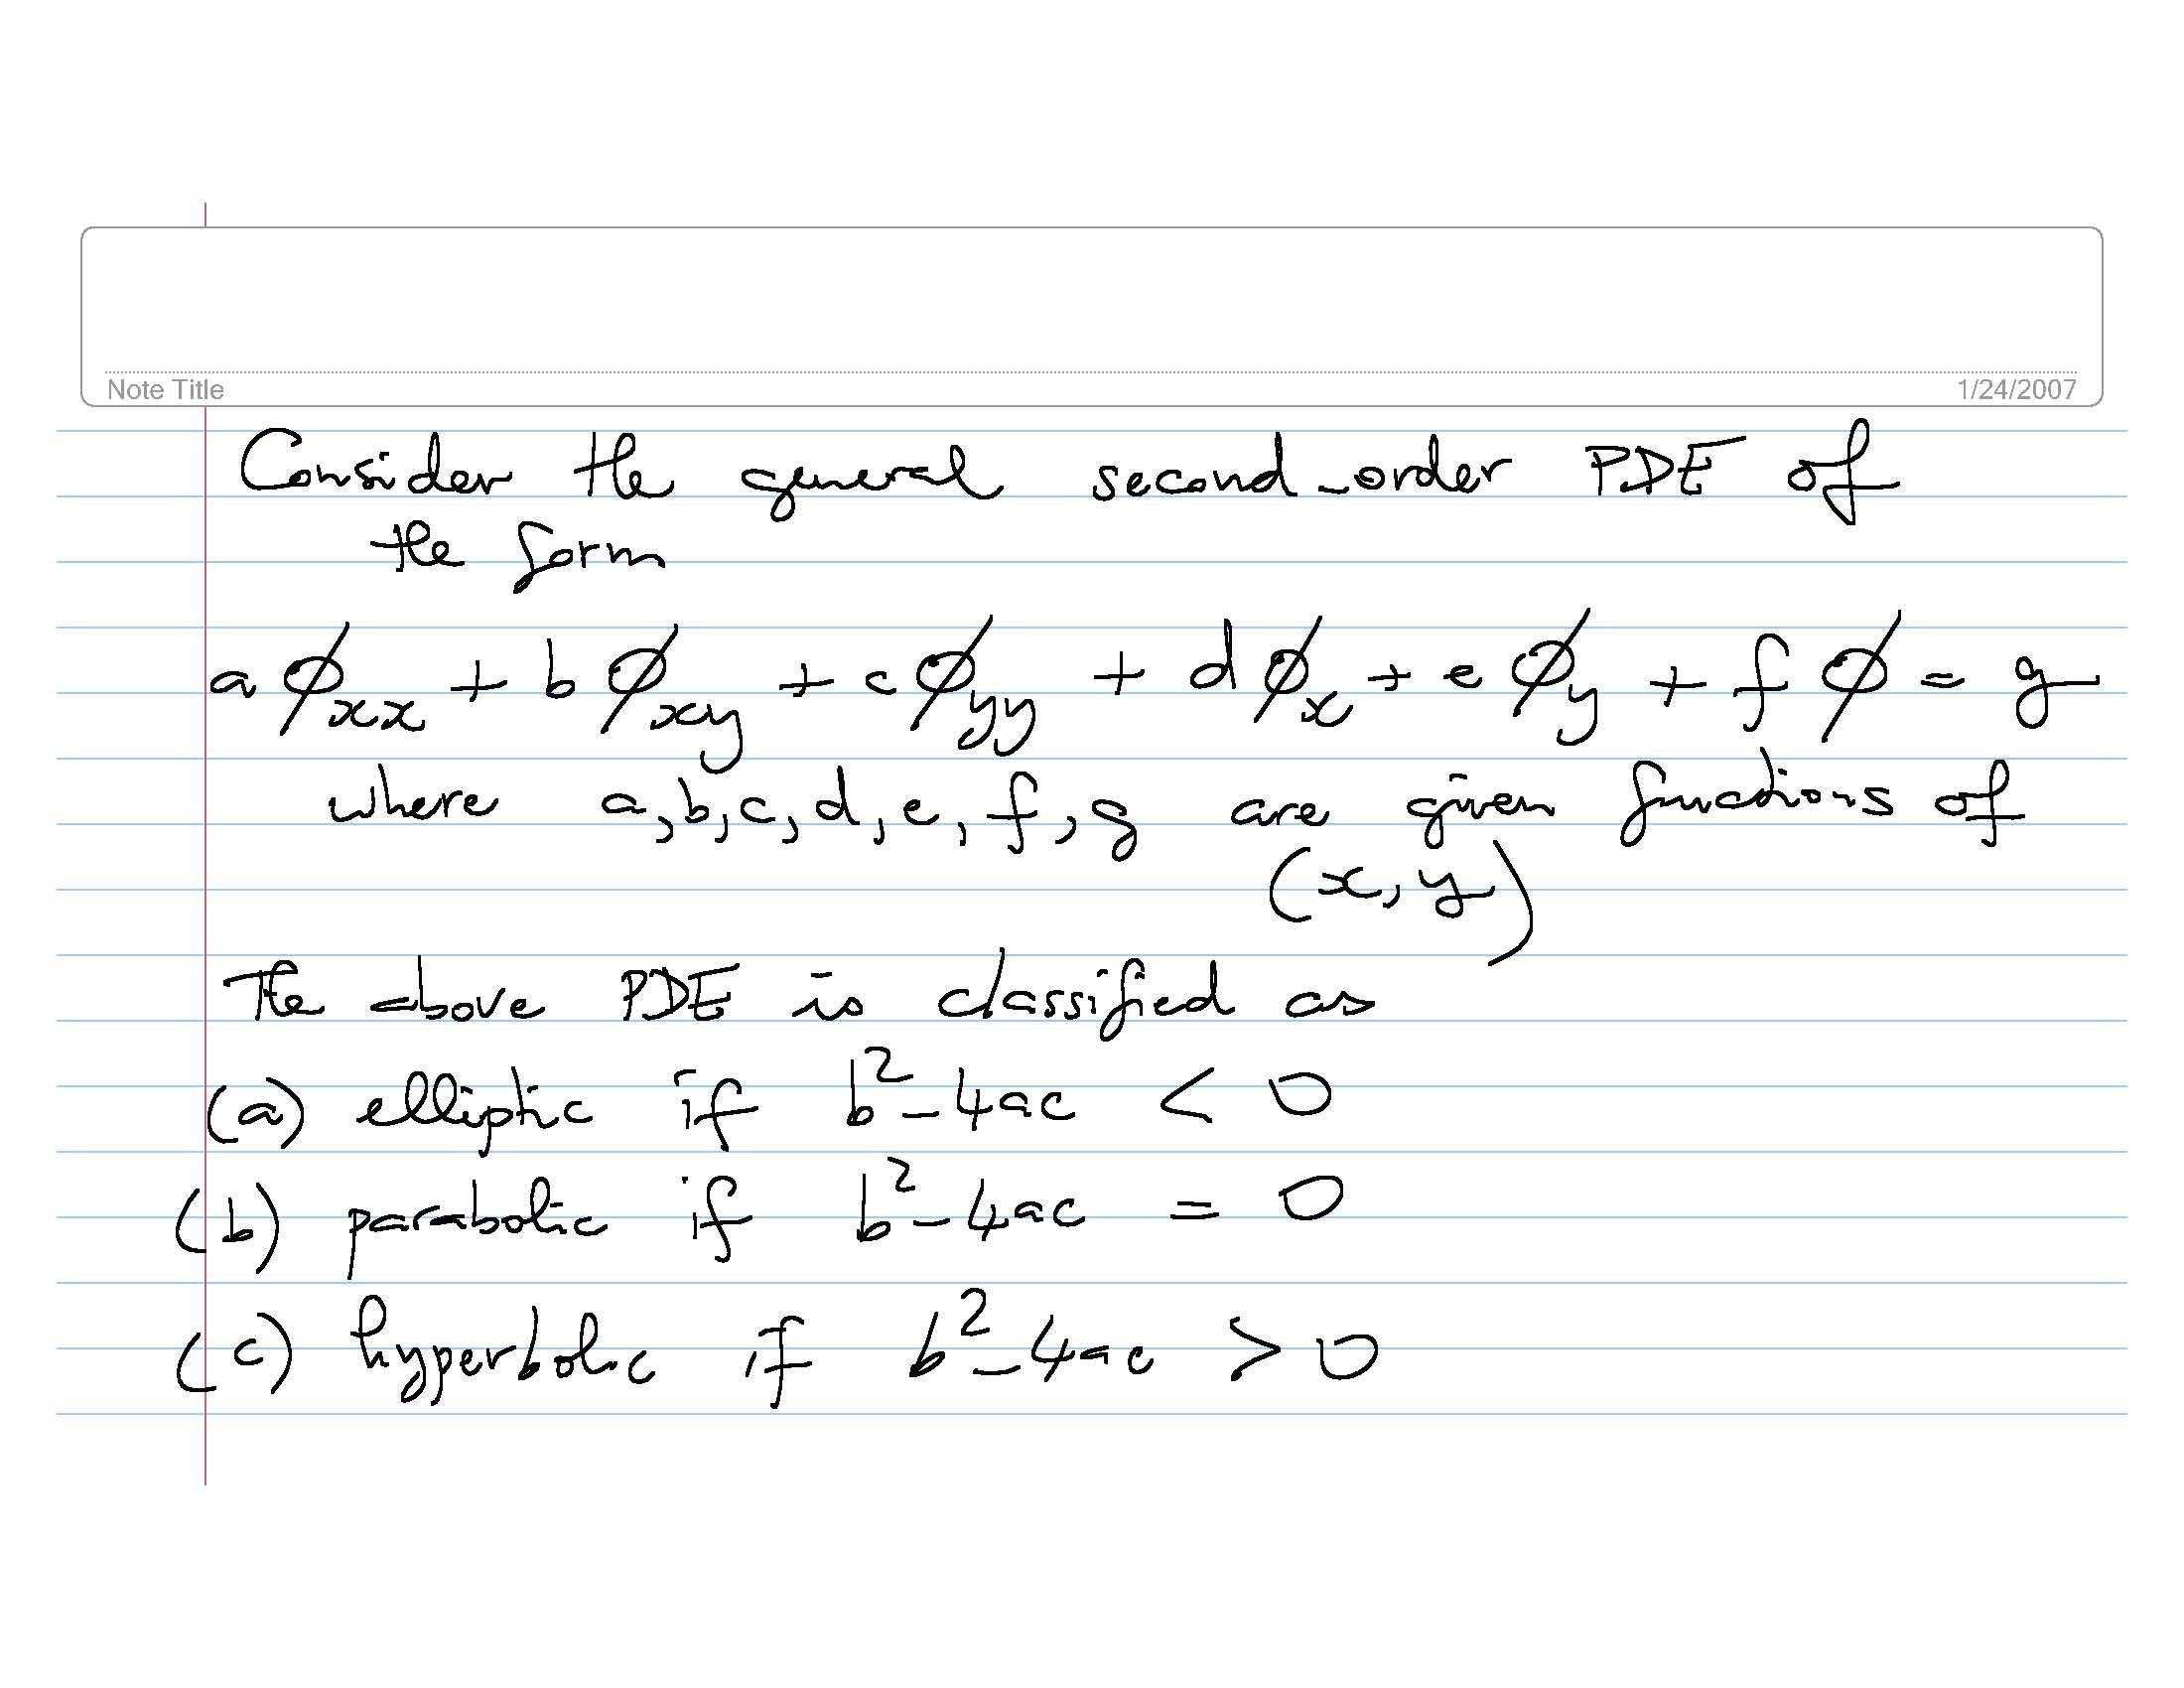 Note Title
1/24/2007
Consider the general second-order PDE of
the form
aϕxx + bϕxy + cϕyy + dϕx + eϕy + fϕ = g
where a,b,c,d,e,f,g are given functions of
(x,y)
The above PDE is classified as
(a) elliptic if b²-4ac < 0
(b) parabolic if b²-4ac = 0
(c) hyperbolic if b²-4ac > 0